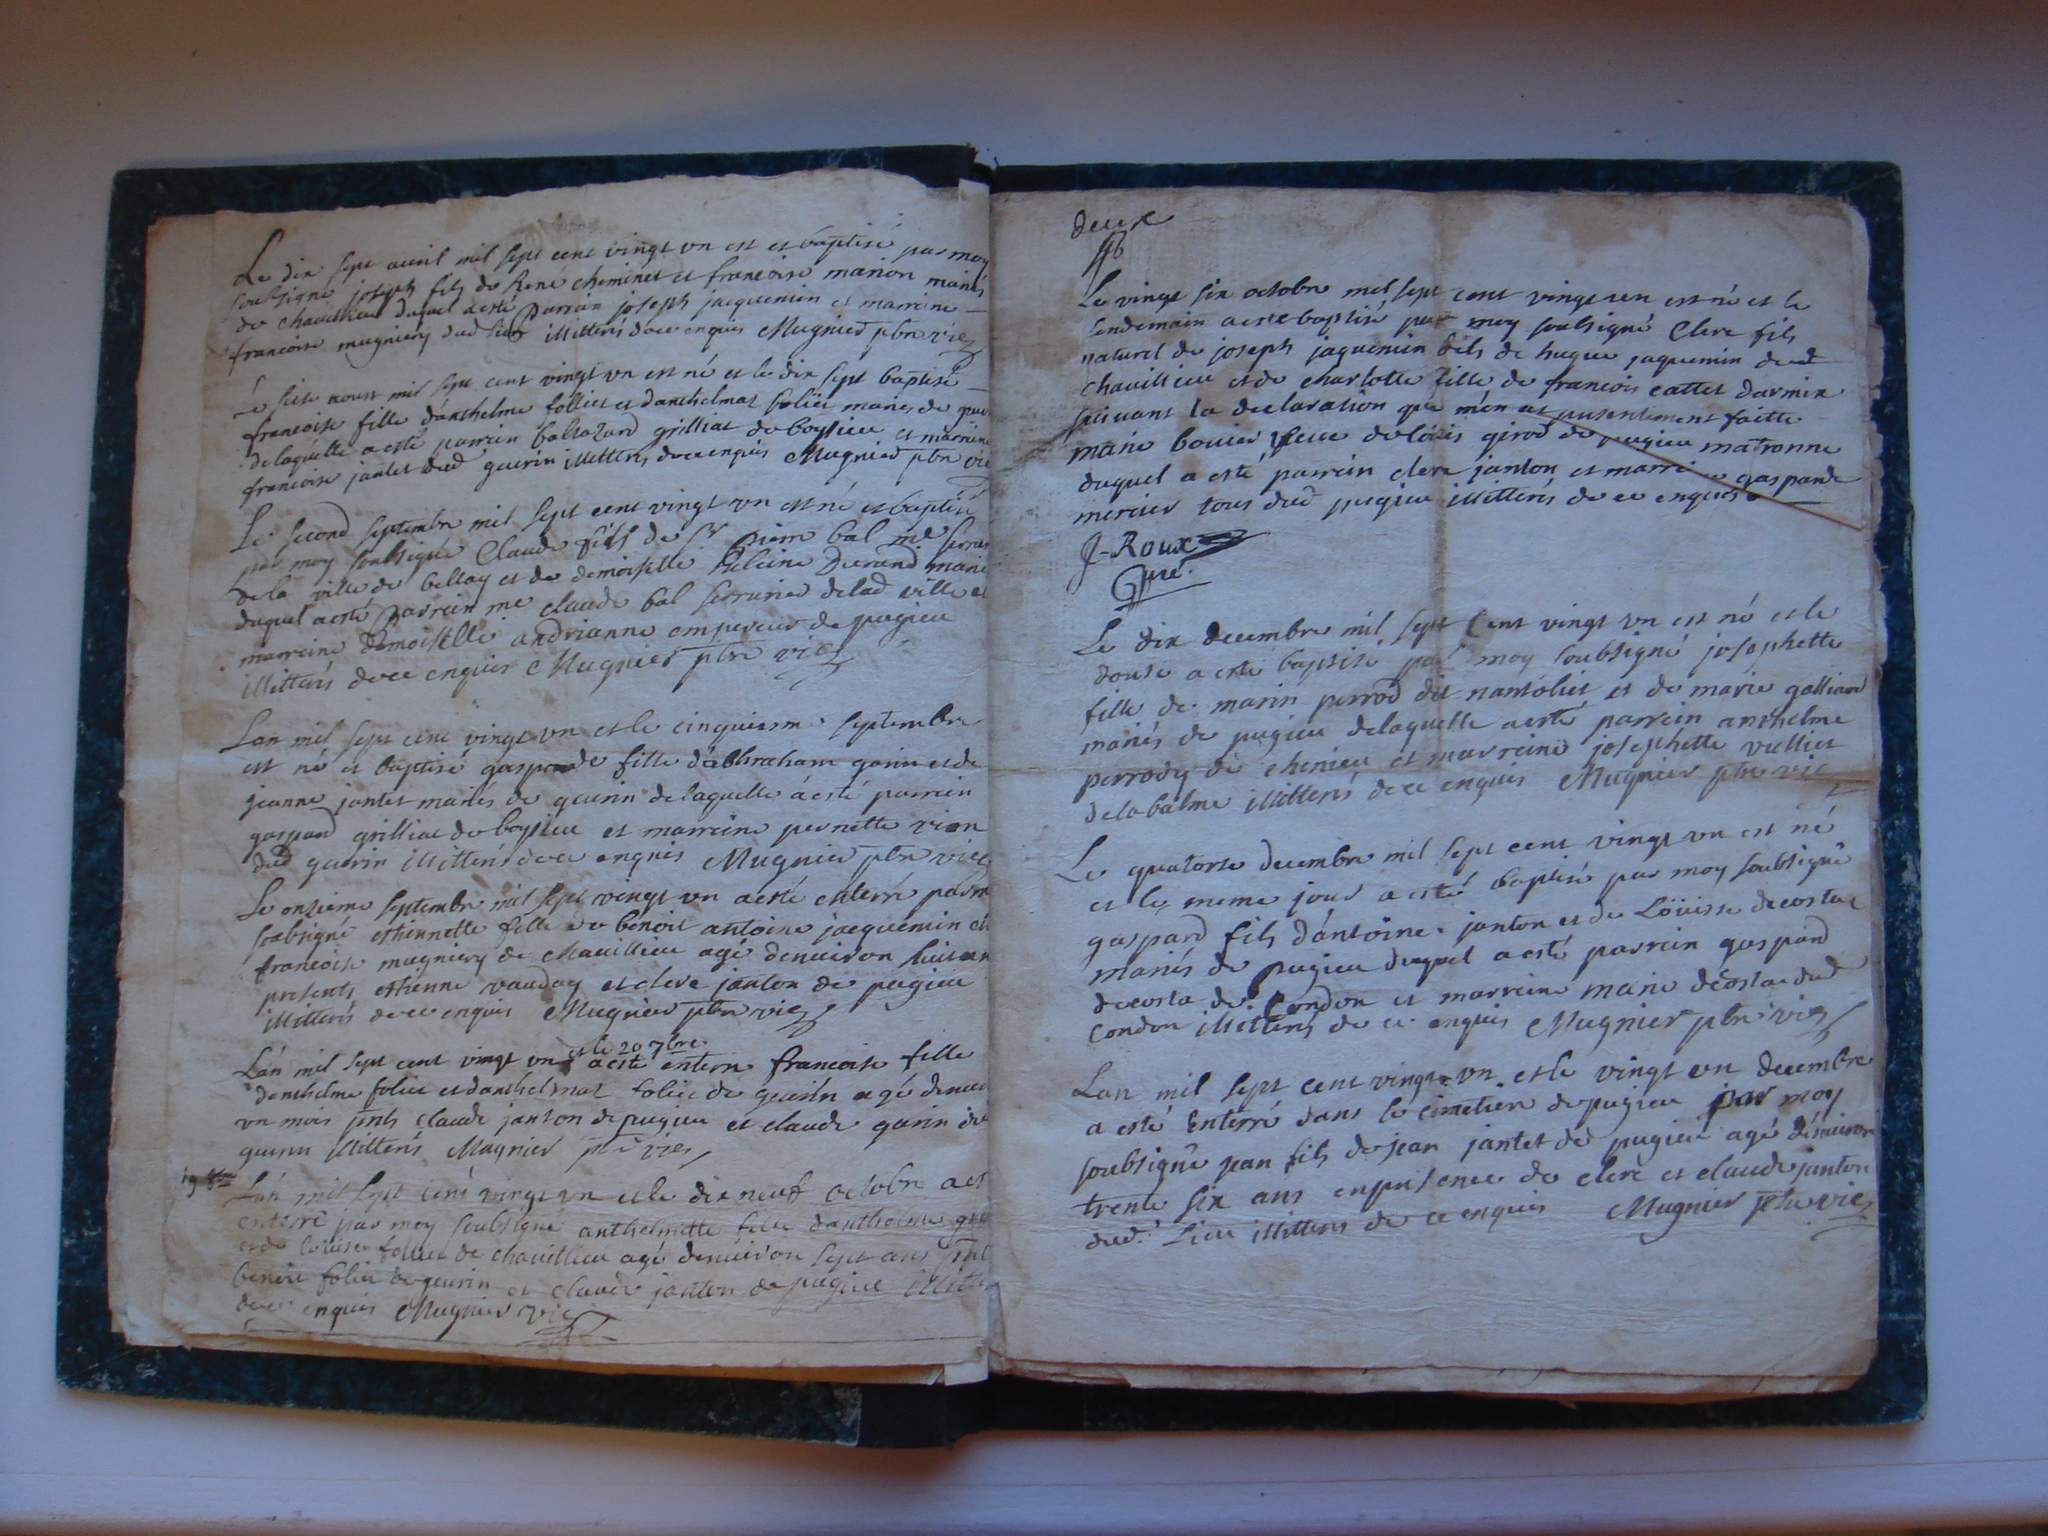 Le dix sept avril mil sept cent vingt vn est et baptisé par moy
soubsigné joseph fils de René cheminet et francoise marion mariés
de chavillieu duquel a esté parrain joseph jacquemin et marreine
francoise mugniery dud lieu illitterés de ce enquis Mugnier ptre vic
Le seise aoust mil sept cent vingt vn est né et le dix sept baptisé
francoise fille danthelme folliet et danthelmaz foliet mariés de
delaquelle a esté parrein baltazard grilliat de boysieu et marreine
francoise jantet dud guerin illitterés de ce enquis Mugnier ptre vic
Le second septembre mil sept cent vingt vn est né et baptisé
par moy soubsigné Claude fils de sr pierre bal me
de la ville de bellay et de demoiselle heleine Durand mariés
duquel a esté parrein me claude bal serrurier de lad ville et
marreine demoiselle andrianne empereur de pugieu
illitterés de ce enquis Mugnier ptre vic
Lan mil sept cent vingt vn et le cinquiesme septembre
est né et baptisé gasparde fille dabhraham garin et de
jeanne jantet mariés de guerin de laquelle a esté parrein
gaspard grilliat de boysieu et marreine pernette vion
dud guerin illitterés de ce enquis Mugnier ptre vic
Le onsieme septembre mil sept vingt vn a esté enterré par m
soubsigné esthiennette fille de benoit antoine jacquemin et
francoise mugniery de chavillieu agé denviron huit an
presents estienne vauday et clere janton de pugieu
illitterés de ce enquis Mugnier ptre vic
et le 20 7bre
Lan mil sept cent vingt vn a esté enterré francoise fille
danthelme foliet et danthelmaz foliet de guerin agé denvi
vn mois pnts claude janton de pugieu et claude garin de
guerin illitterés Mugnier ptre vic
19 8bre
Lan mil sept cent vingt vn et le dix neuf octobre a est
enterré par moy soubsigné anthelmette fille danthelme
et de louise foliet de chavillieu agé denviron sept ans pnt
benoit foliet de guerin et claude janton de pugieu illitte
de ce enquis Mugnier vic
deux
Le vingt six octobre mil sept cent vingt un est né et le
lendemain a esté baptisé par moy soubsigné Clere fils
naturel de joseph jaquemin fils de hugue jaquemin dud
chavillieu et de charlotte fille de francois cattet darmix
suivant la declaration que men at presentement faitte
marie bouvier feue de loüis girod de pugieu matronne
duquel a esté parrein clere janton et marreine gasparde
mercier tous dud pugieu illitterés de ce enquis
J-Roux
Curé
Le dix decembre mil sept cent vingt vn est né et le
douse a esté baptisé par moy soubsigné josephette
fille de marin perrod dit nantoliet et de marie galliard
mariés de pugieu delaquelle a esté parrein anthelme
perrody de chenieu et marreine josephette vulliet
de la balme illitterés de ce enquis Mugnier ptre vic
Le quatorse decembre mil sept cent vingt vn est né
et le meme jour a esté baptisé par moy soubsigné
gaspard fils dantoine janton et de Loüisse decostaz
mariés de pugieu duquel a esté parrein gaspard
decosta de Condon et marreine marie decosta dud
Condon illitterés de ce enquis Mugnier ptre vic
Lan mil sept cent vingt vn et le vingt vn decembre
a esté Enterré dans le cimetiere de pugieu par moy
soubsigné jean fils de jean jantet de pugieu agé denviron
trente six ans en presence de clere et claude janton
dud. Lieu illitterés de ce enquis Mugnier ptre vic